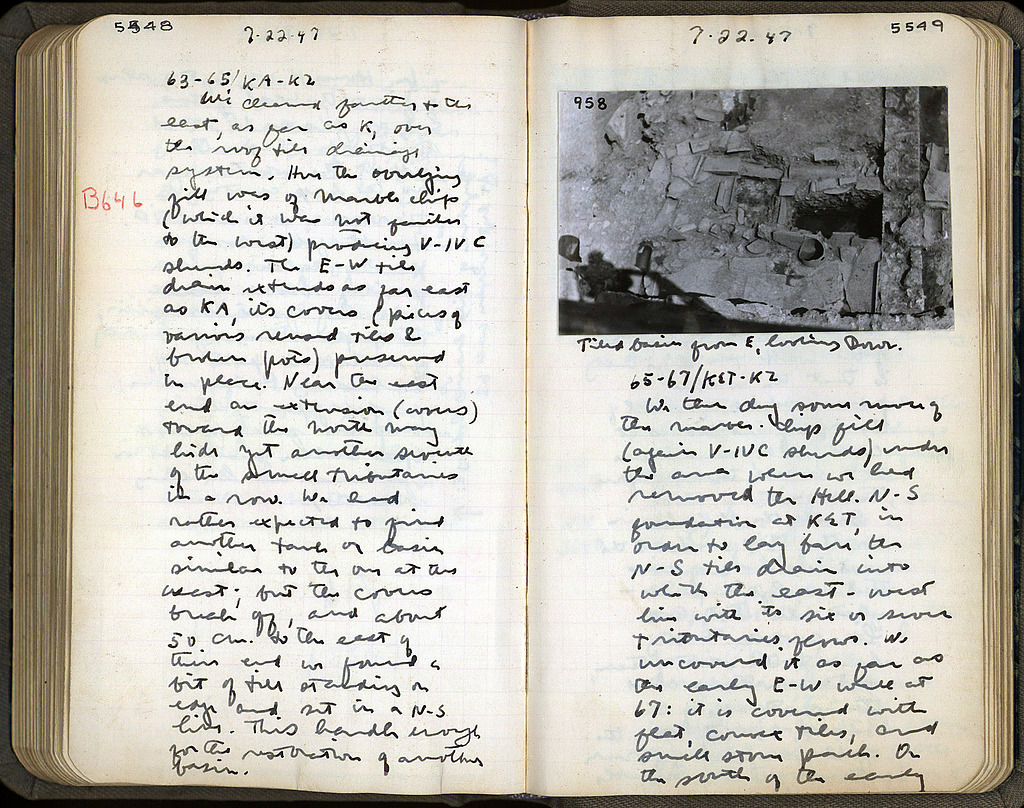 5548
7-22-47
63-65/KA-KZ
We cleared farther to the
east, as far as K, over
the roof tile drainage
system. Here the overlying
B646
fill was of marble chip
(which it was not further
to the west) producing V-IV C
sherds. The E-W tile
drain extends as far east
as KA, its covers (pieces of
various reused tiles &
broken pots) preserved
in place. Near the east
end an extension (covers)
toward the north may
hide yet another seventh
of the small tributaries
in a row. We had
rather expected to find
another tank or basin
similar to the one at the
west; but the covers
break off, and about
50 cm. to the east of
their end we found a
bit of tile standing on
edge and set in a N-S
line. This hardly enough
for the restoration of another
basin.
5549
7.22.47
958
Tiled basin from E, looking Down.
65-67/KET-KZ
We then dug some more of
the marble-chip fill
(again V-IVC sherds) under
the area where we had
removed the Hell. N-S
foundation at KET, in
order to lay bare the
N-S tile drain into
which the east-west
line with its six or seven
tributaries flows. We
uncovered it as far as
the early E-W wall at
67: it is covered with
flat, convex tiles, and
small stone pack. On
the south of the early